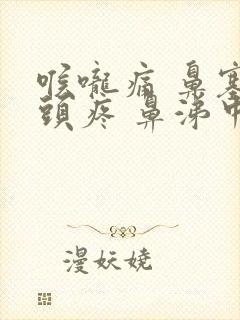 喉嚨痛 鼻塞
頭疼 鼻涕
漫妖嬈